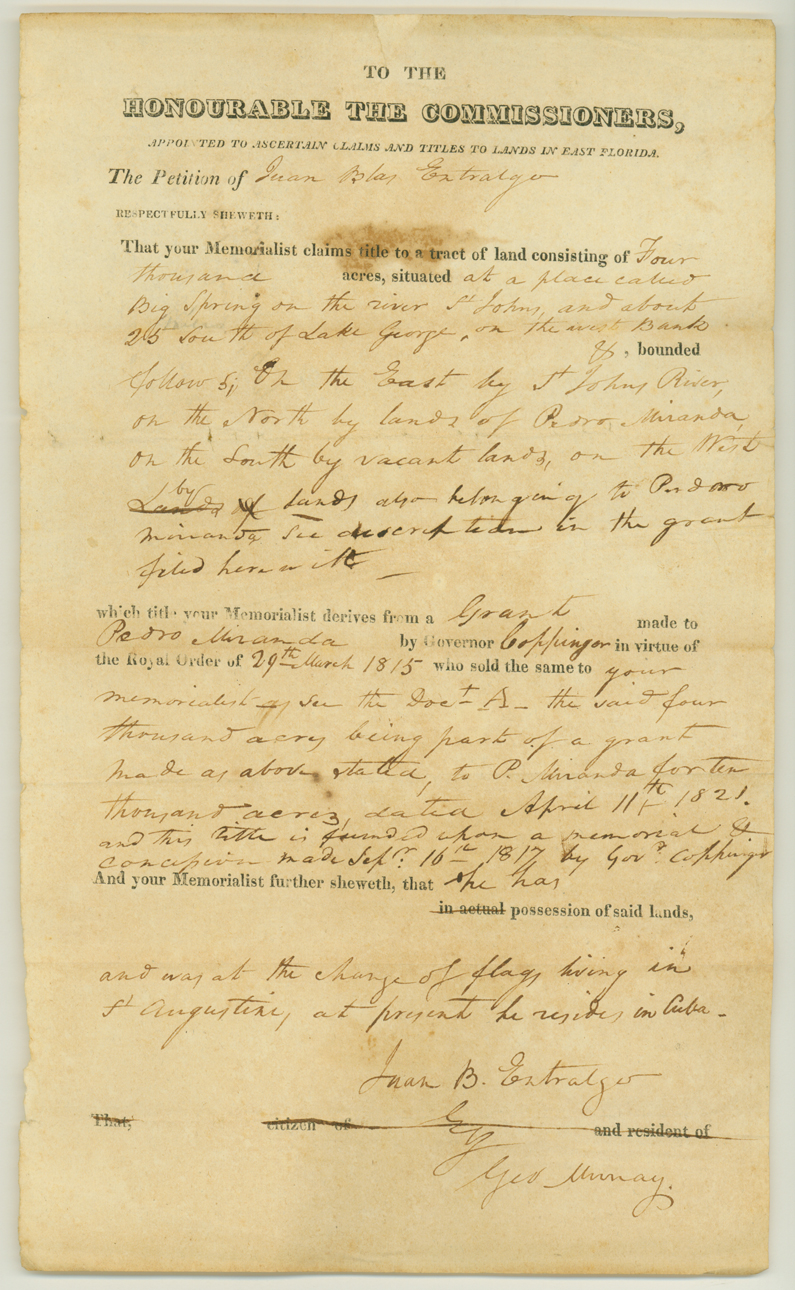 TO THE
HONOURABLE THE COMMISSIONERS,
APPOINTED TO ASCERTAIN CLAIMS AND TITLES TO LANDS IN EAST FLORIDA.
The Petition of Juan Blas Entralgo
RESPECTFULLY SHEWETH:
That your Memorialist claims title to a tract of land consisting of Four
thousand acres, situated at a place called
Big Spring on the river St Johns, and about
25 South of Lake George, on the west Bank
, bounded
follows; On the East by St Johns River,
on the North by lands of Pedro Miranda,
on the South by vacant lands, on the West
by
Lands of Lands also belonging to Perdoro
Miranda see description in the grant
filed herewith
which title your Memorialist derives from a Grant made to
Pedro Miranda by Governor Coppinger in virtue of
the Royal Order of 29th March 1815 who sold the same to your
memorialist as see the Doct. B - the said four
thousand acres being part of a grant
made as above stated, to P. Miranda for ten
thousand acres, dated April 11th 1821.
and this title is funded upon a memorial &
concession made Sepr. 16th 1817 by Govr. Coppinger
And your Memorialist further sheweth, that he has
in actual possession of said lands,
and was at the change of flags living in
St Augustine, at present he resides in Cuba -
Juan B. Entralgo
That, citizen of and resident of
By
Geo Murray.